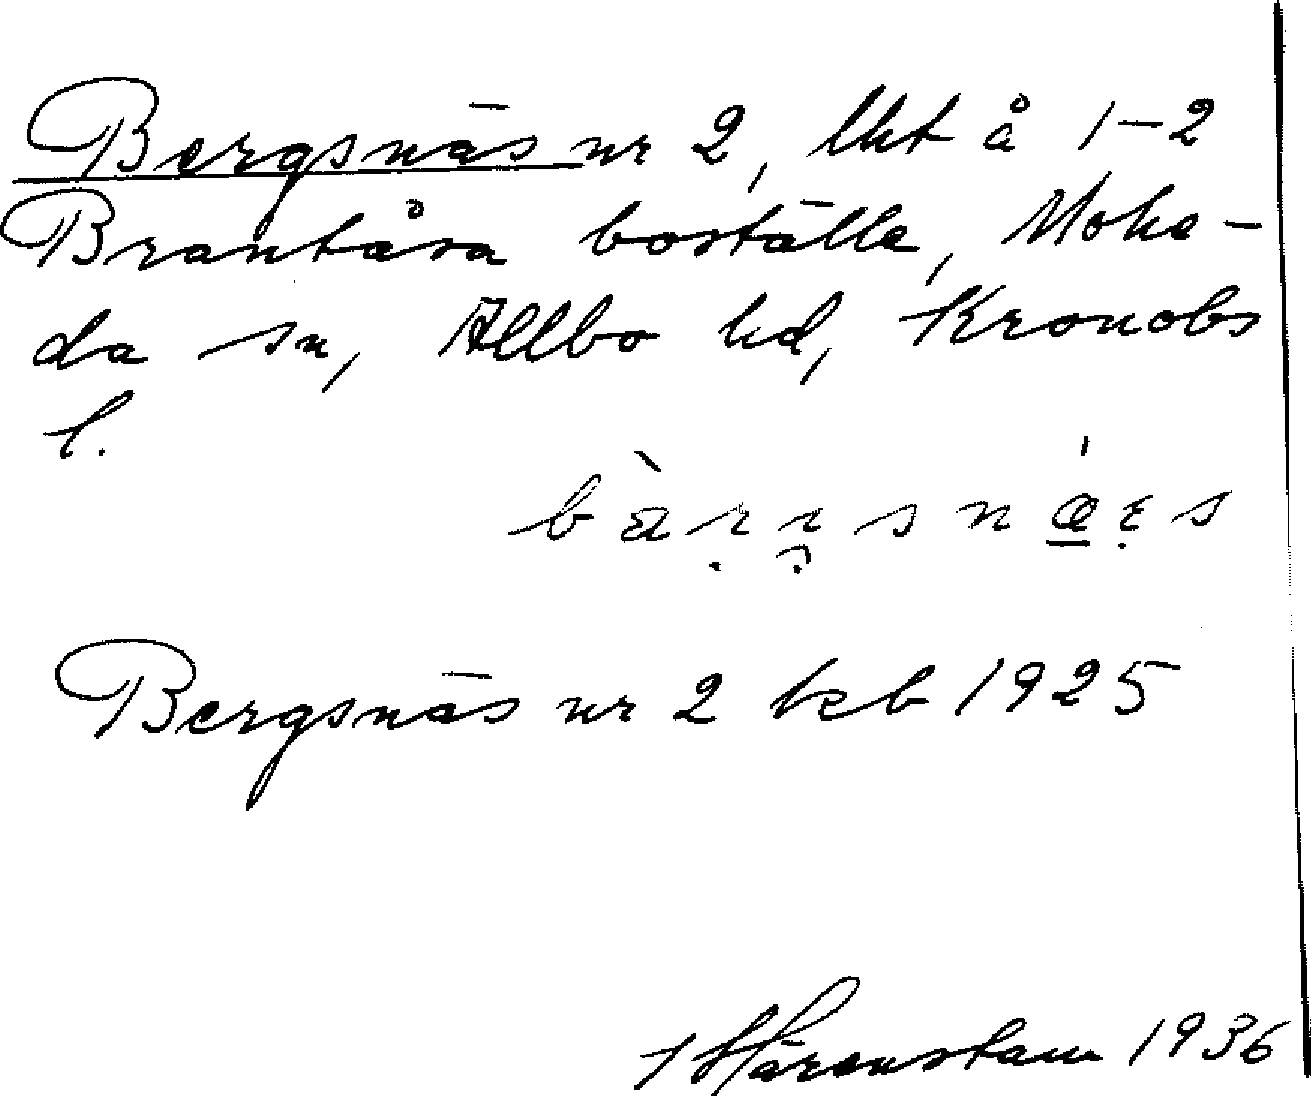 Bergsnäs nr 2, lht å 1-2
Brantåsa boställe, Mohe-
da sn, Allbo hd, Kronobs
l.
bàrṛsnǽɛs
Bergsnäs nr 2 kcb 1925
Härenstam 1936